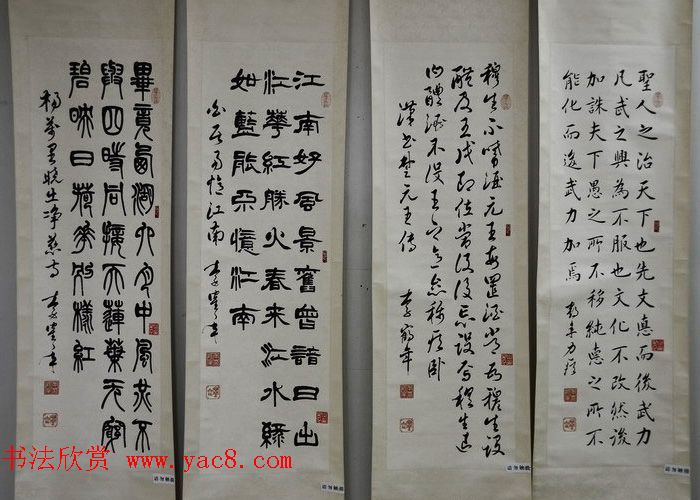 畢竟西湖六月中風光不
與四時同接天蓮葉无窮
碧映日荷花別樣紅
楊萬里曉出净慈寺 李鶴年
江南好風景舊曾諳日出
江華紅勝火春來江水緑
如藍能不憶江南
白居易憶江南 李鶴年
穆生不嗜酒元王每置酒常為穆生設
醴及王戊即位常設後忘設焉穆生退
曰醴酒不設王之意怠稱疾卧
漢書楚元王傳 李鶴年
聖人之治天下也先文悳而後武力
凡武之興為不服也文化不改然後
加誅夫下愚之所不移純悳之所不
能化而後武力加焉 鶴年力疾
书法欣赏 www.yac8.com
请勿触摸
请勿触摸
请勿触摸